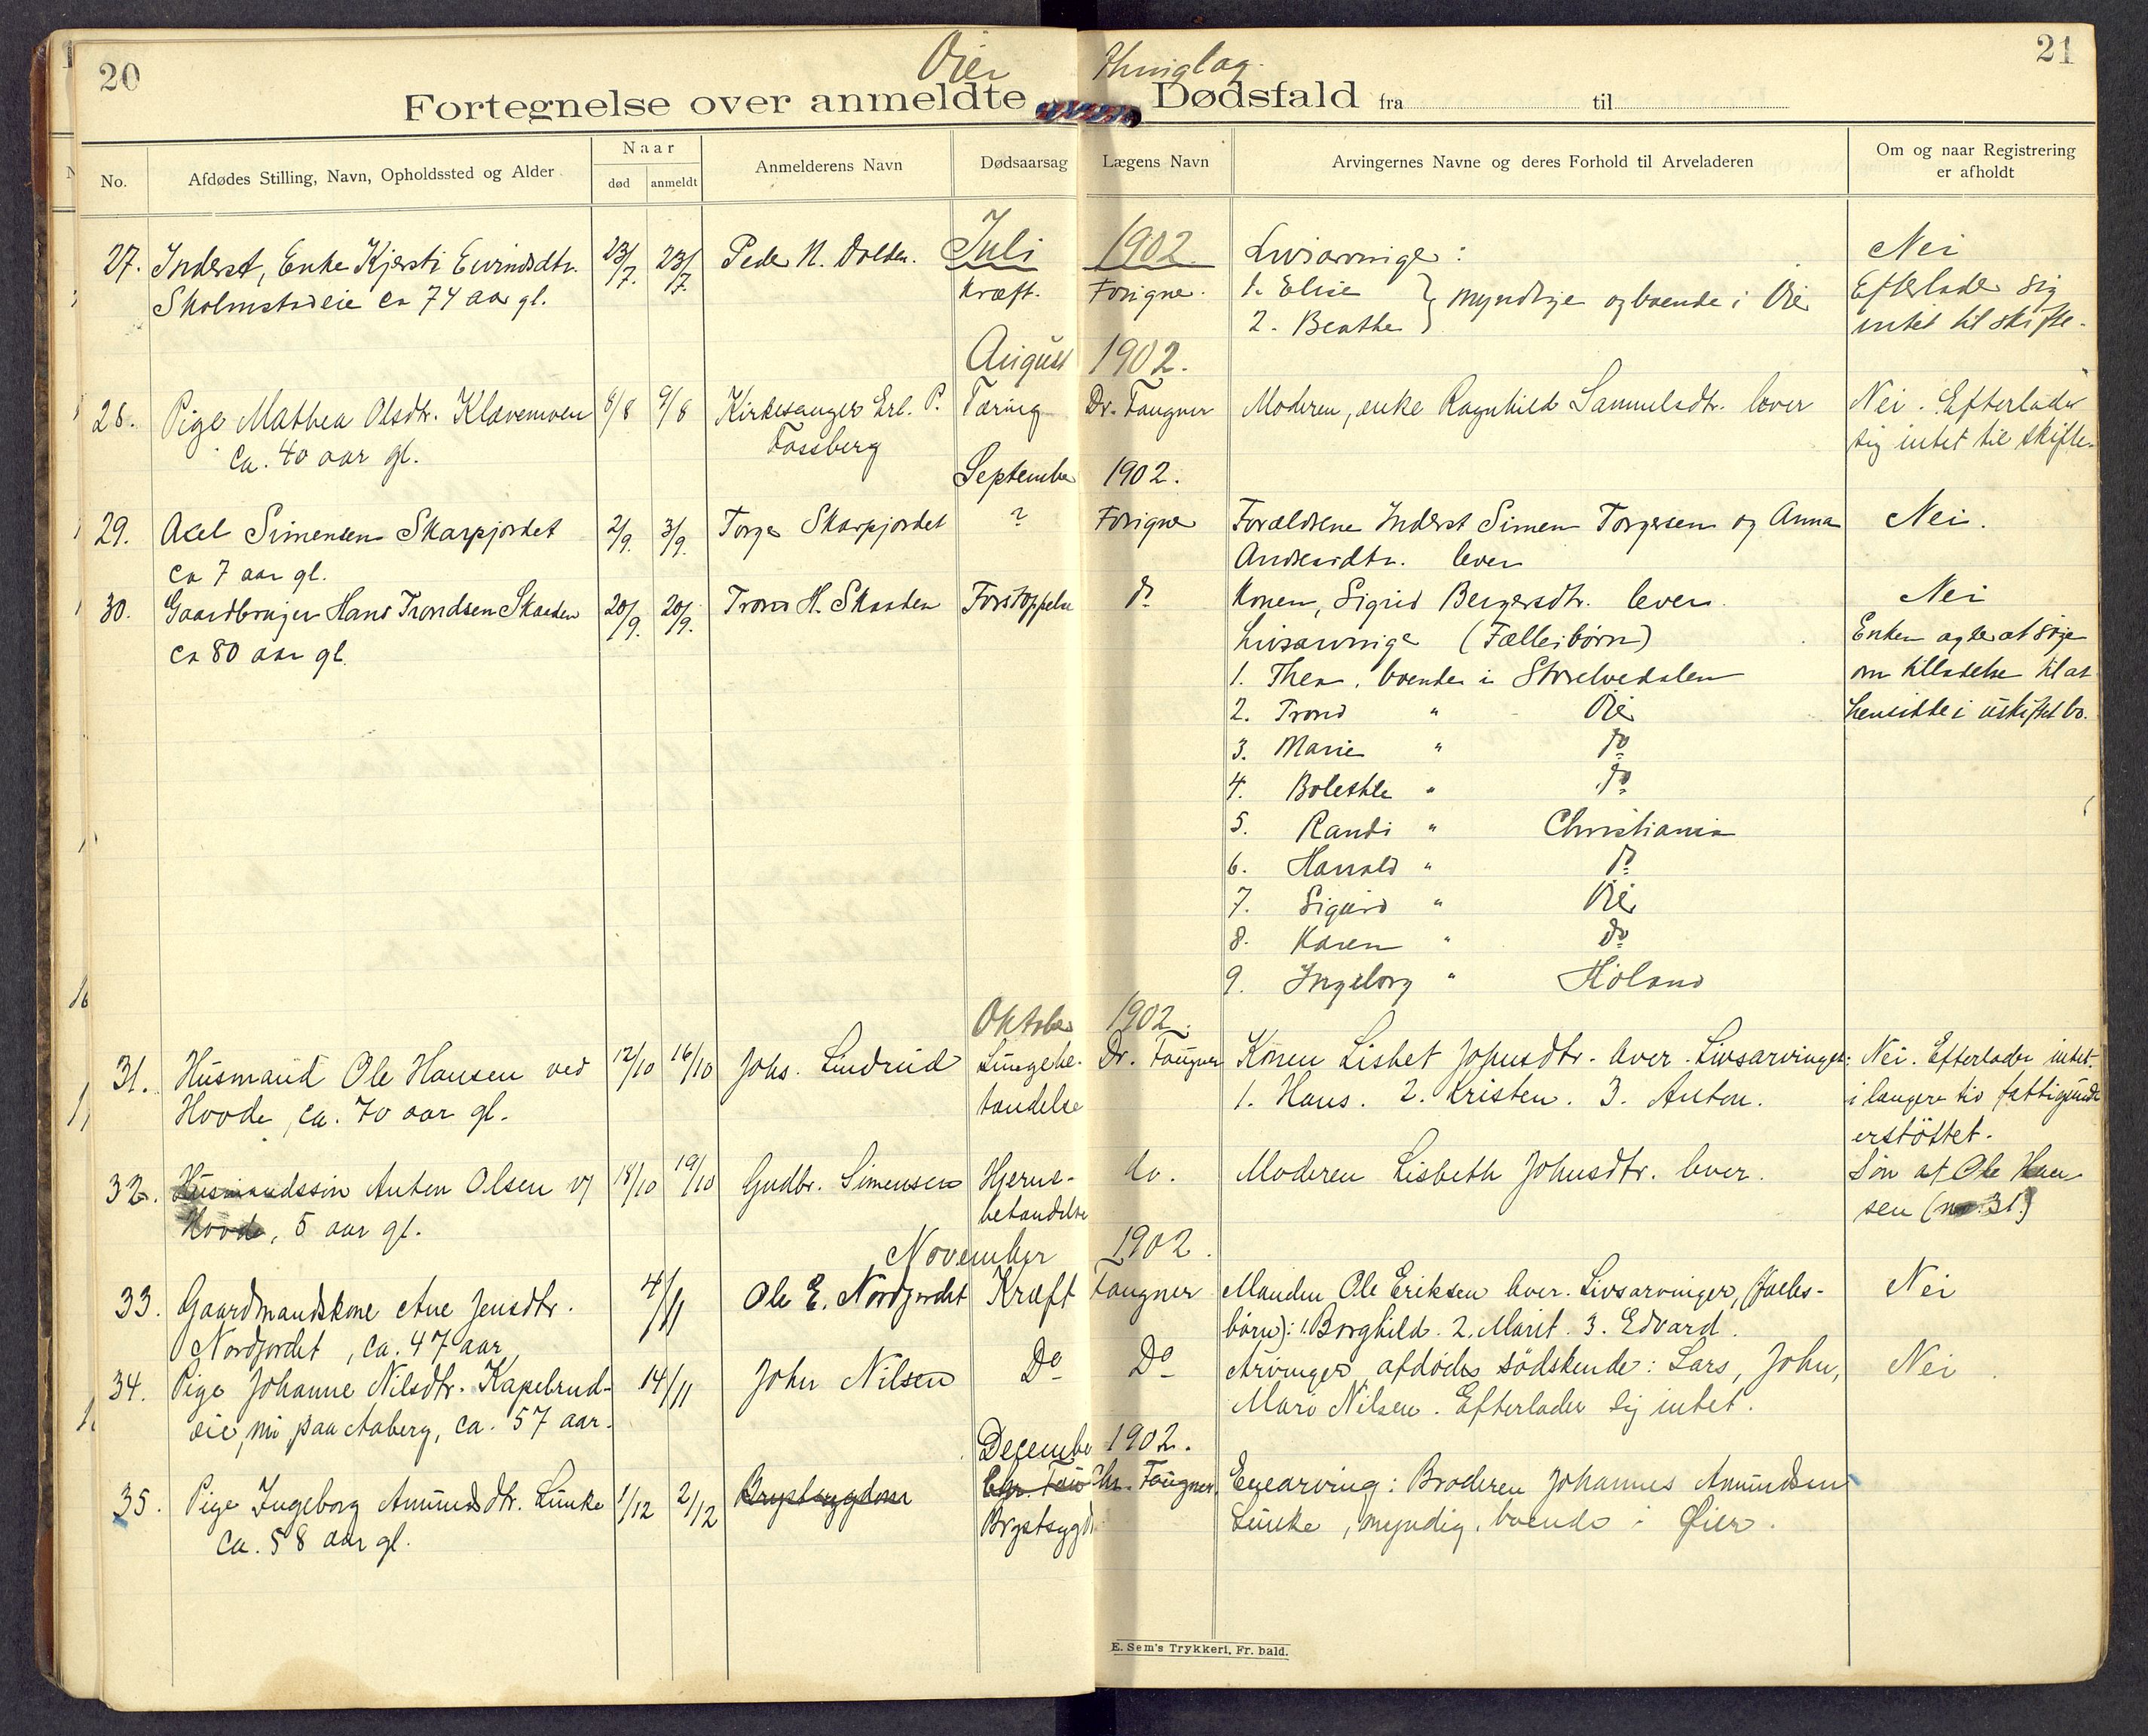 20
Øier Thinglag.
21
Fortegnelse over anmeldte Dødsfald fra til
No.
Afdødes Stilling, Navn, Opholdssted og Alder
Naar
død
anmeldt
Anmelderens Navn
Dødsaarsag
Lægens Navn
Arvingernes Navne og deres Forhold til Arveladeren
Om og naar Registrering
er afholdt
Juli 1902.
27. Inderst, Enke Kjersti Eivindsdtr. 23/7. 23/7. Peder N. Kræft. Livsarvinger: Nei
Skolmstadeie ca 74 aar gl. 1. Elise } myndige og boende i Øier Efterlader sig
2. Beathe intet til skifte.
August 1902.
28. Pige Mathea Olsdtr. Klævemoen 8/8 9/8 Kirkesanger Erl. P. Tæring Dr. Faugner Moderen, enke Ragnhild Samuelsdtr. lever Nei. Efterlader
ca. 40 aar gl. Fossberg sig intet til skifte.
September 1902.
29. Axel Simensen Skarpjordet 2/9. 3/9. Torger Skarpjordet ? Forældrene Inderst Simen Torgersen og Anna Nei.
ca 7 aar gl. Andersdtr. lever
30. Gaardbruger Hans Trondsen Skaaden 20/9. 20/9. Trond H. Skaaden Forstoppelse do Konen, Sigrid Bergersdtr. lever. Nei
ca 80 aar gl. Livsarvinger (Fællesbørn) Enken agter at søge
1. Thea, boende i Storelvedalen om tilladelse til at
2. Trond " Øier hensidde i uskiftet bo.
3. Marie " do
4. Bolethe " do
5. Randi " Christiania
6. Harald " do
7. Sigurd " Øier
8. Karen " do
9. Ingeborg " Høland
Oktober 1902.
31. Husmand Ole Hansen ved 12/10 16/10 Johs. Lindrud Lungebe- Dr. Faugner Konen Lisbet Johnsdtr. lever. Livsarvinger: Nei. Efterlader intet.
Hovde, ca. 70 aar gl. tændelse 1. Hans. 2. Kristen. 3. Anton. i længere tid fattigunder-
erstøttet.
32. Husmandssøn Anton Olsen v/ 18/10 19/10 Gudbr. Simensen Hjerne- do. Moderen Lisbeth Johnsdtr. lever. Søn af Ole Han-
Hovde, 5 aar gl. betændelse sen (no. 31.)
November 1902.
33. Gaardmandskone Ane Jensdtr. 4/11 Ole E. Nordjordet Kræft Faugner Manden Ole Eriksen lever. Livsarvinger, (fælles- Nei
Nordjordet, ca. 47 aar børn): 1. Borghild. 2. Marit. 3. Edvard.
34. Pige Johanne Nilsdtr. Kapelrud- 14/11 John Nilsen Do Do Arvinger afdødes sødskende: Lars, John, Nei
eie, nu paa Aaberg, ca. 57 aar. Mari Nilsen. Efterlader sig intet.
December 1902.
35. Pige Ingeborg Amundsdtr. Lunke 1/12 2/12 Brystsygdom Chr. Faugner. Enearving: Broderen Johannes Amundsen
ca. 58 aar gl. Brystsygd. Lunke, myndig, boende i Øier.
E. Sem's Trykkeri, Fr.hald.